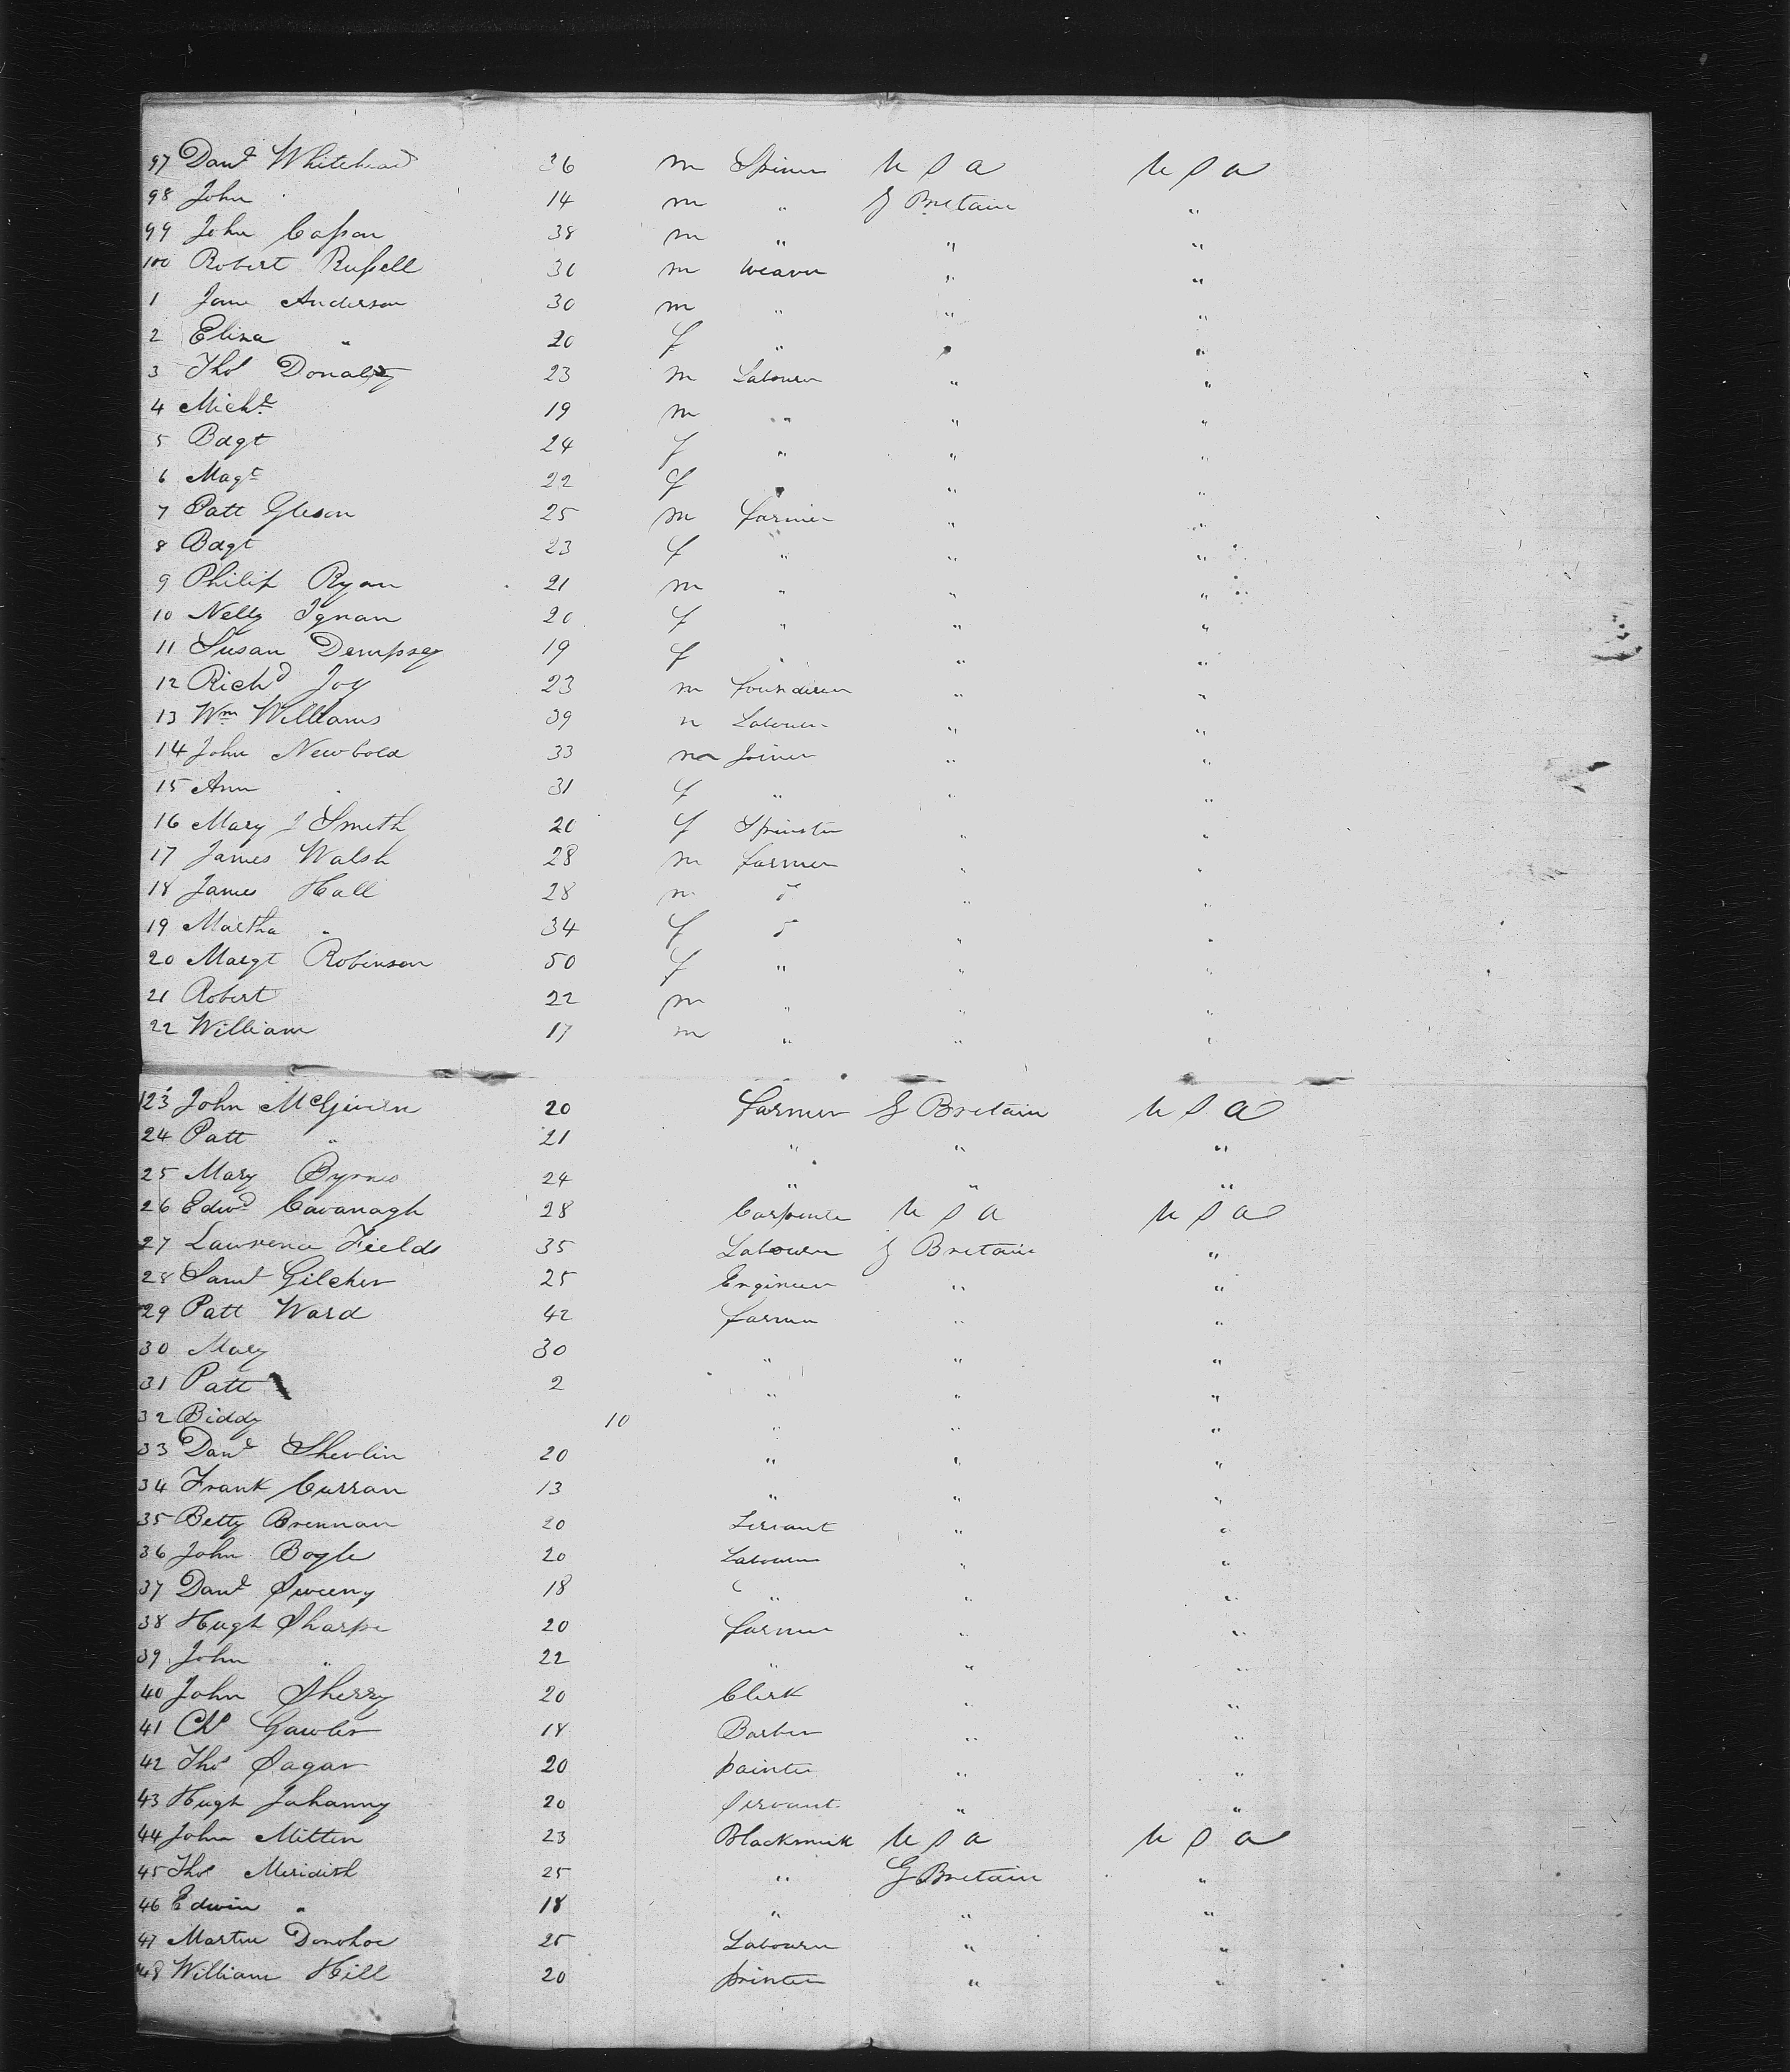 97 Danl Whitehead 36 m Spiner U S A U S A
98 John 14 m " G Britain "
99 John Casson 38 m " " "
100 Robert Russell 30 m Weaver " "
1 Jane Anderson 30 m " " "
2 Eliza " 20 f " " "
3 Thos Donaley 23 m Labourer " "
4 Michl 19 m " " "
5 Bdgt 24 f " " "
6 Magt 22 f " " "
7 Patt Gleson 25 m farmer " "
8 Bdgt 23 f " " "
9 Philip Ryan 21 m " " "
10 Nelly Ignan 20 f " " "
11 Susan Dempsey 19 f " " "
12 Richd Joy 23 m " "
13 Wm Williams 39 m Labourer " "
14 John Newbold 33 m Joiner " "
15 Ann " 31 f " " "
16 Mary J Smith 20 f Spinster " "
17 James Walsh 28 m farmer " "
18 James Hall 28 m " "
19 Martha " 34 f " "
20 Margt Robinson 50 f " " "
21 Robert 22 m " " "
22 William 17 m " " "
123 John McGivern 20 farmer G Britain U S A
24 Patt " 21 " " "
25 Mary Byrnes 24 " " "
26 Edwd Cavanagh 28 Carpenter U S A U S A
27 Lawrence Fields 35 Labourer G Britain "
28 Saml Gilcher 25 Engineer " "
29 Patt Ward 42 farmer " "
30 Mary 30 " " "
31 Patt 2 " " "
32 Biddy 10 " " "
33 Danl Shevlin 20 " " "
34 Frank Curran 13 " " "
35 Betty Brennan 20 Servant " "
36 John Bogle 20 Labourer " "
37 Danl Sweeny 18 " " "
38 Hugh Sharpe 20 farmer " "
39 John " 22 " " "
40 John Sherry 20 Clerk " "
41 Chs Gawler 18 Barber " "
42 Thos Sagar 20 painter " "
43 Hugh Jahanny 20 Servant " "
44 John Mitten 23 Blacksmith U S A U S A
45 Thos Meridith 25 " G Britain "
46 Edwin " 18 " " "
47 Martin Donohoe 25 Labourer " "
48 William Hill 20 printer " "